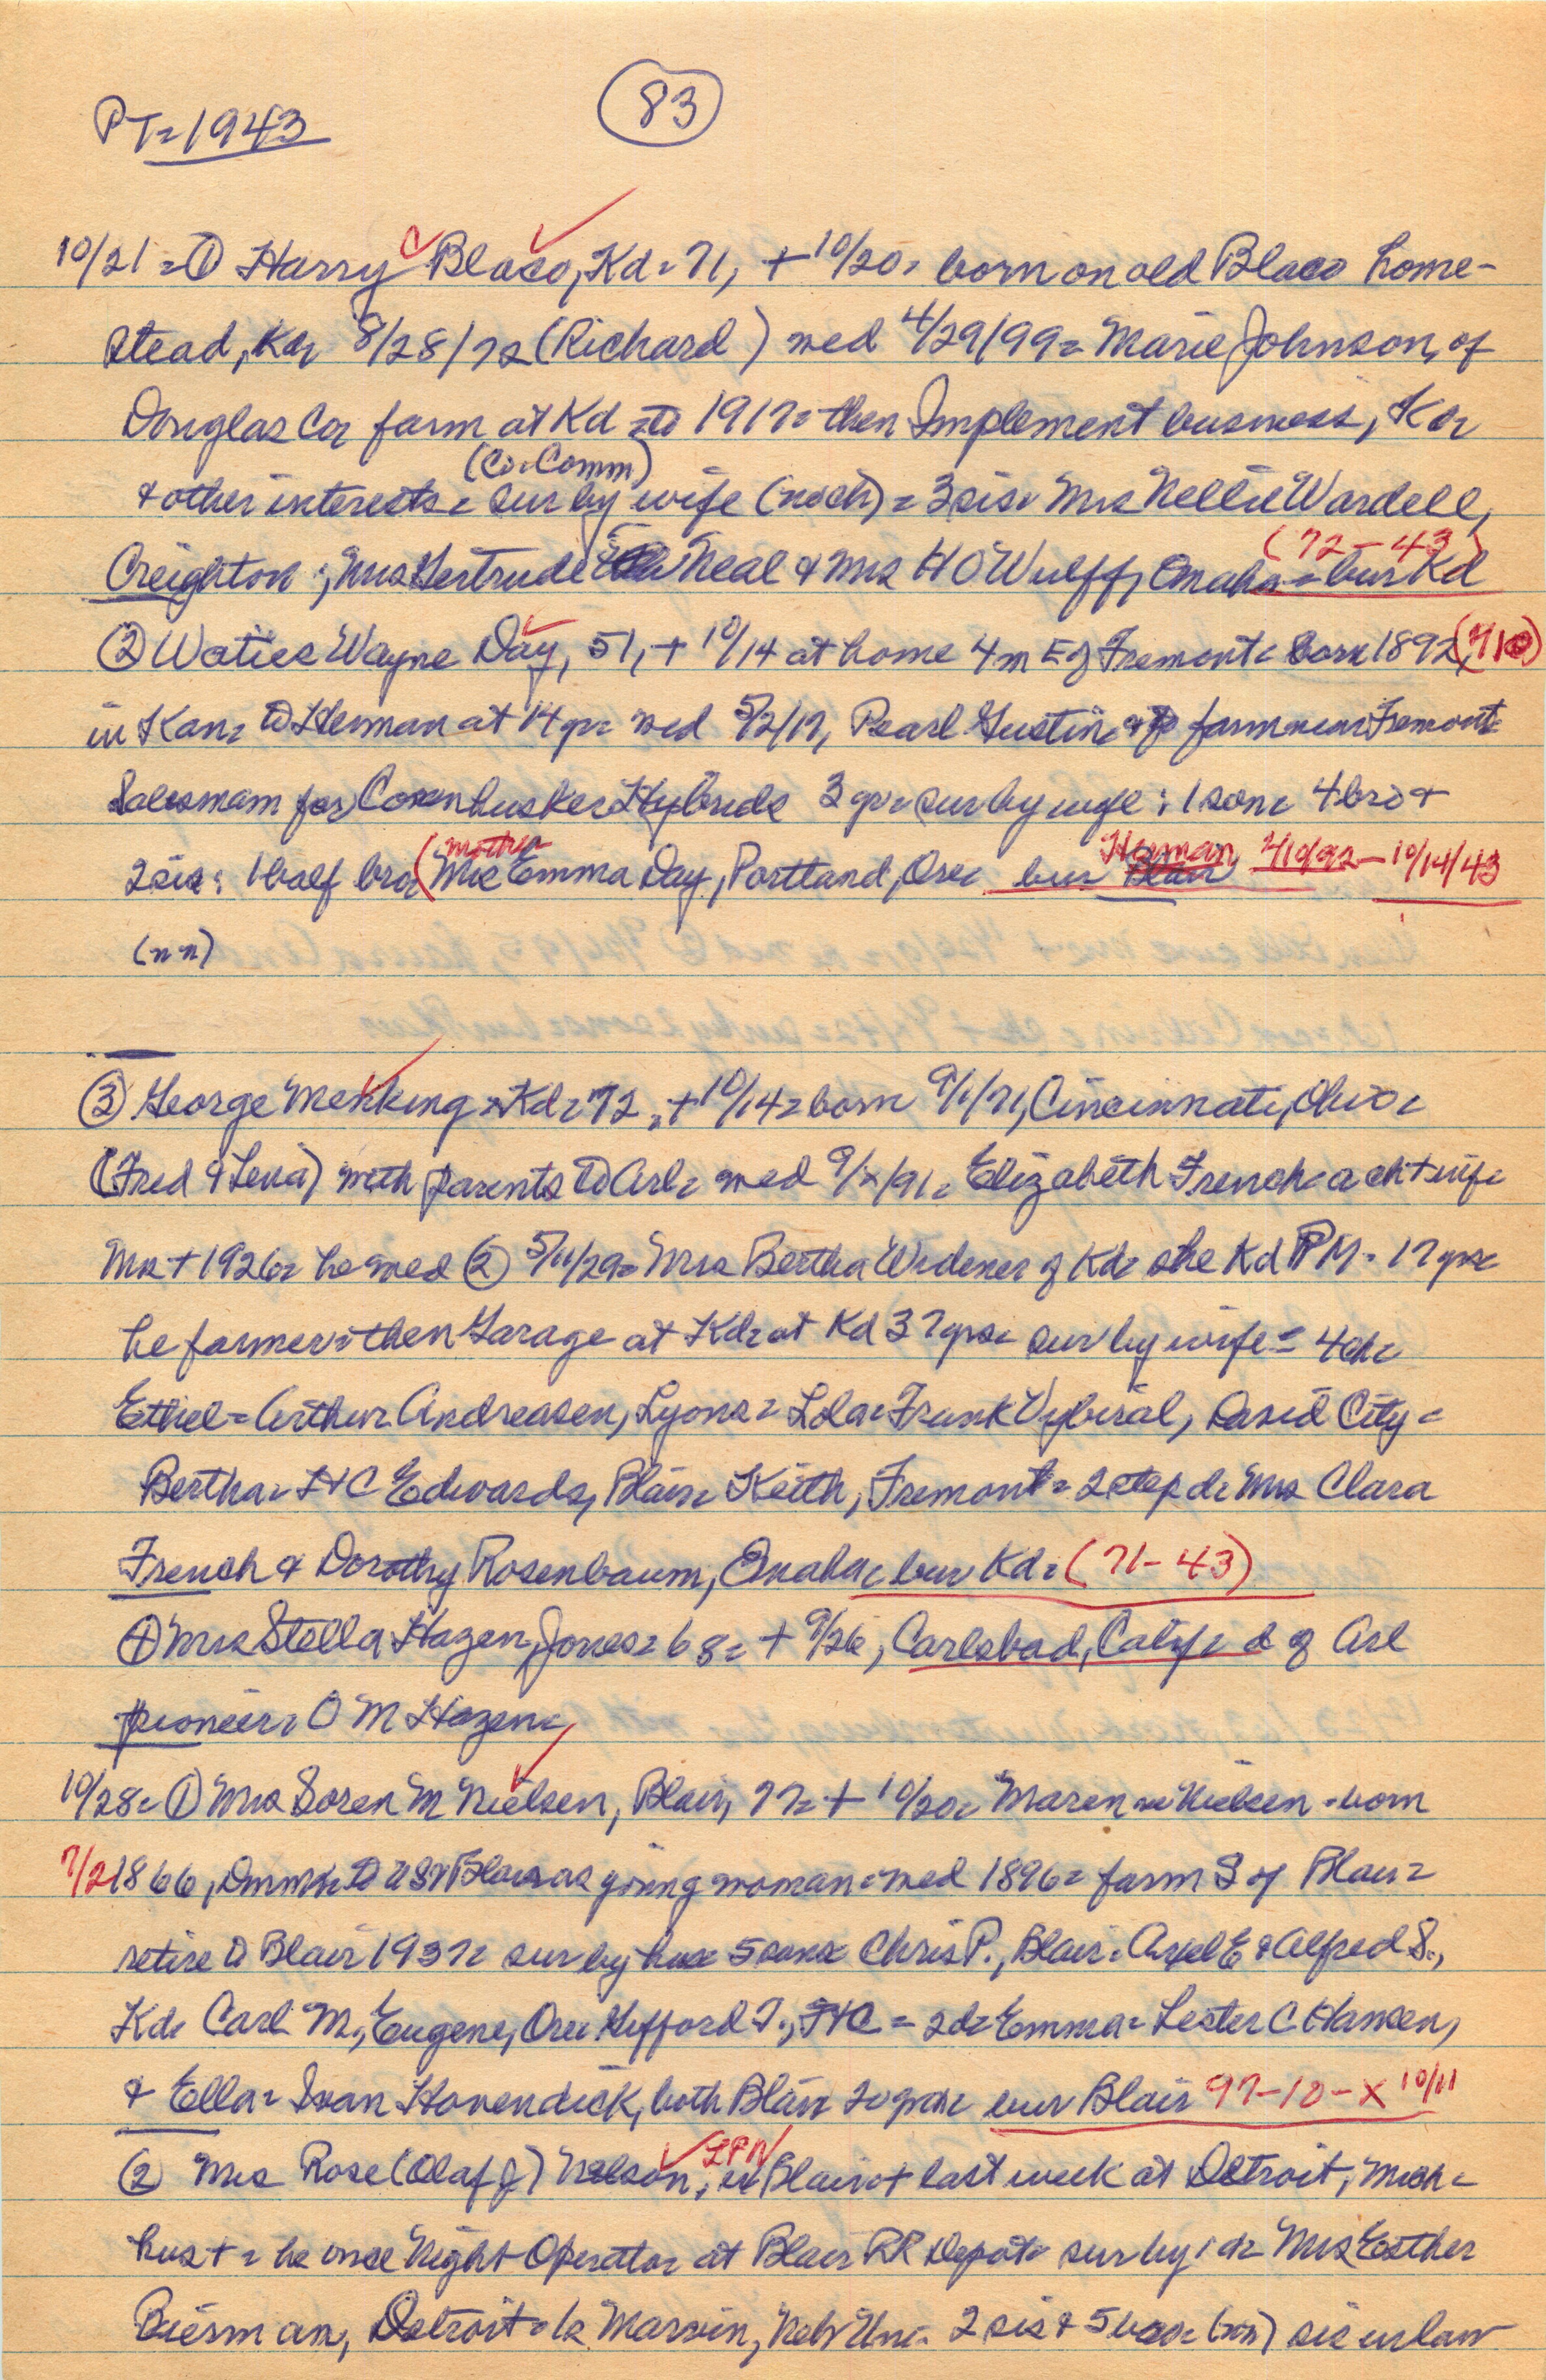 PT=1943
83
10/21=① Harry Blaco, Kd=71, + 10/20= born on old Blaco home-
stead, Kd= 8/28/72 (Richard) wed 4/29/99= Marie Johnson, of
Douglas Co= farm at Kd =to 1917= then Implement business, Kd=
(Co=Comm)
& other interests= sur by wife (no ch)= 3 sis= Mrs Nellie Wardell,
Creighton; Mrs Gertrude Neal & Mrs H O Wulff, Omaha= bur Kd
(72-43)
② Wayne Day, 51, + 10/14 at home 4 m E of Fremont= born 1892,
in Kan= to Herman at 14 yr= wed 5/2/17, Pearl Gustin= farm near Fremont=
Salesman for Cornhusker Hybrids 3 yr= sur by wife: 1 son= 4 bro &
mother Herman
2 sis: 1 half bro (Mrs Emma Day, Portland, Ore= bur Blair 7/10/92-10/14/43
(nn)
③ George Mehking= Kd= 72=, + 10/14= born 9/1/71, Cincinnati, Ohio=
(Fred & Lena) with parents to Arl= wed 9/x/91= Elizabeth French= a ch + inf=
Mrs + 1926= he wed ② 5/11/29= Mrs Bertha Widener of Kd= she Kd PM= 17 yrs=
he farmer= then Garage at Kd= at Kd 37 yrs= sur by wife= 4 ch=
Ethel= Arthur Andreasen, Lyons= Lola= Frank Vybiral, David City=
Bertha= H C Edwards, Blair= Keith, Fremont= 2 step d= Mrs Clara
French & Dorothy Rosenbaum, Omaha= bur Kd= (71-43)
④ Mrs Stella Hazen Jones= 68= + 9/26, Carlsbad, Calif= d of Arl
pioneer= O M Hazen=
10/28= ① Mrs Soren M Nielsen, Blair, 77= + 10/20= Maren Nielsen= born
7/2 1866, Denmk= to Blair as young woman= wed 1896= farm S of Blair=
retire to Blair 1937= sur by hus= 5 sons= Chris P., Blair= Axel E & Alfred S.,
Kd= Carl M., Eugene, Ore= Gifford T., = 2 d= Emma= Lester C Hansen,
& Ella= Ivan Hovendick, both Blair 20 grch= bur Blair 97-10-X 10/11
LPN
② Mrs Rose (Olaf J) Nelson, Blair + last week at Detroit, Mich=
hus += he once Night Operator at Blair RR Depot= sur by 1 d= Mrs Esther
Bierman, Detroit= 1 s Marvin, Neb Uni= 2 sis & 5 bro= (nn) sis in law